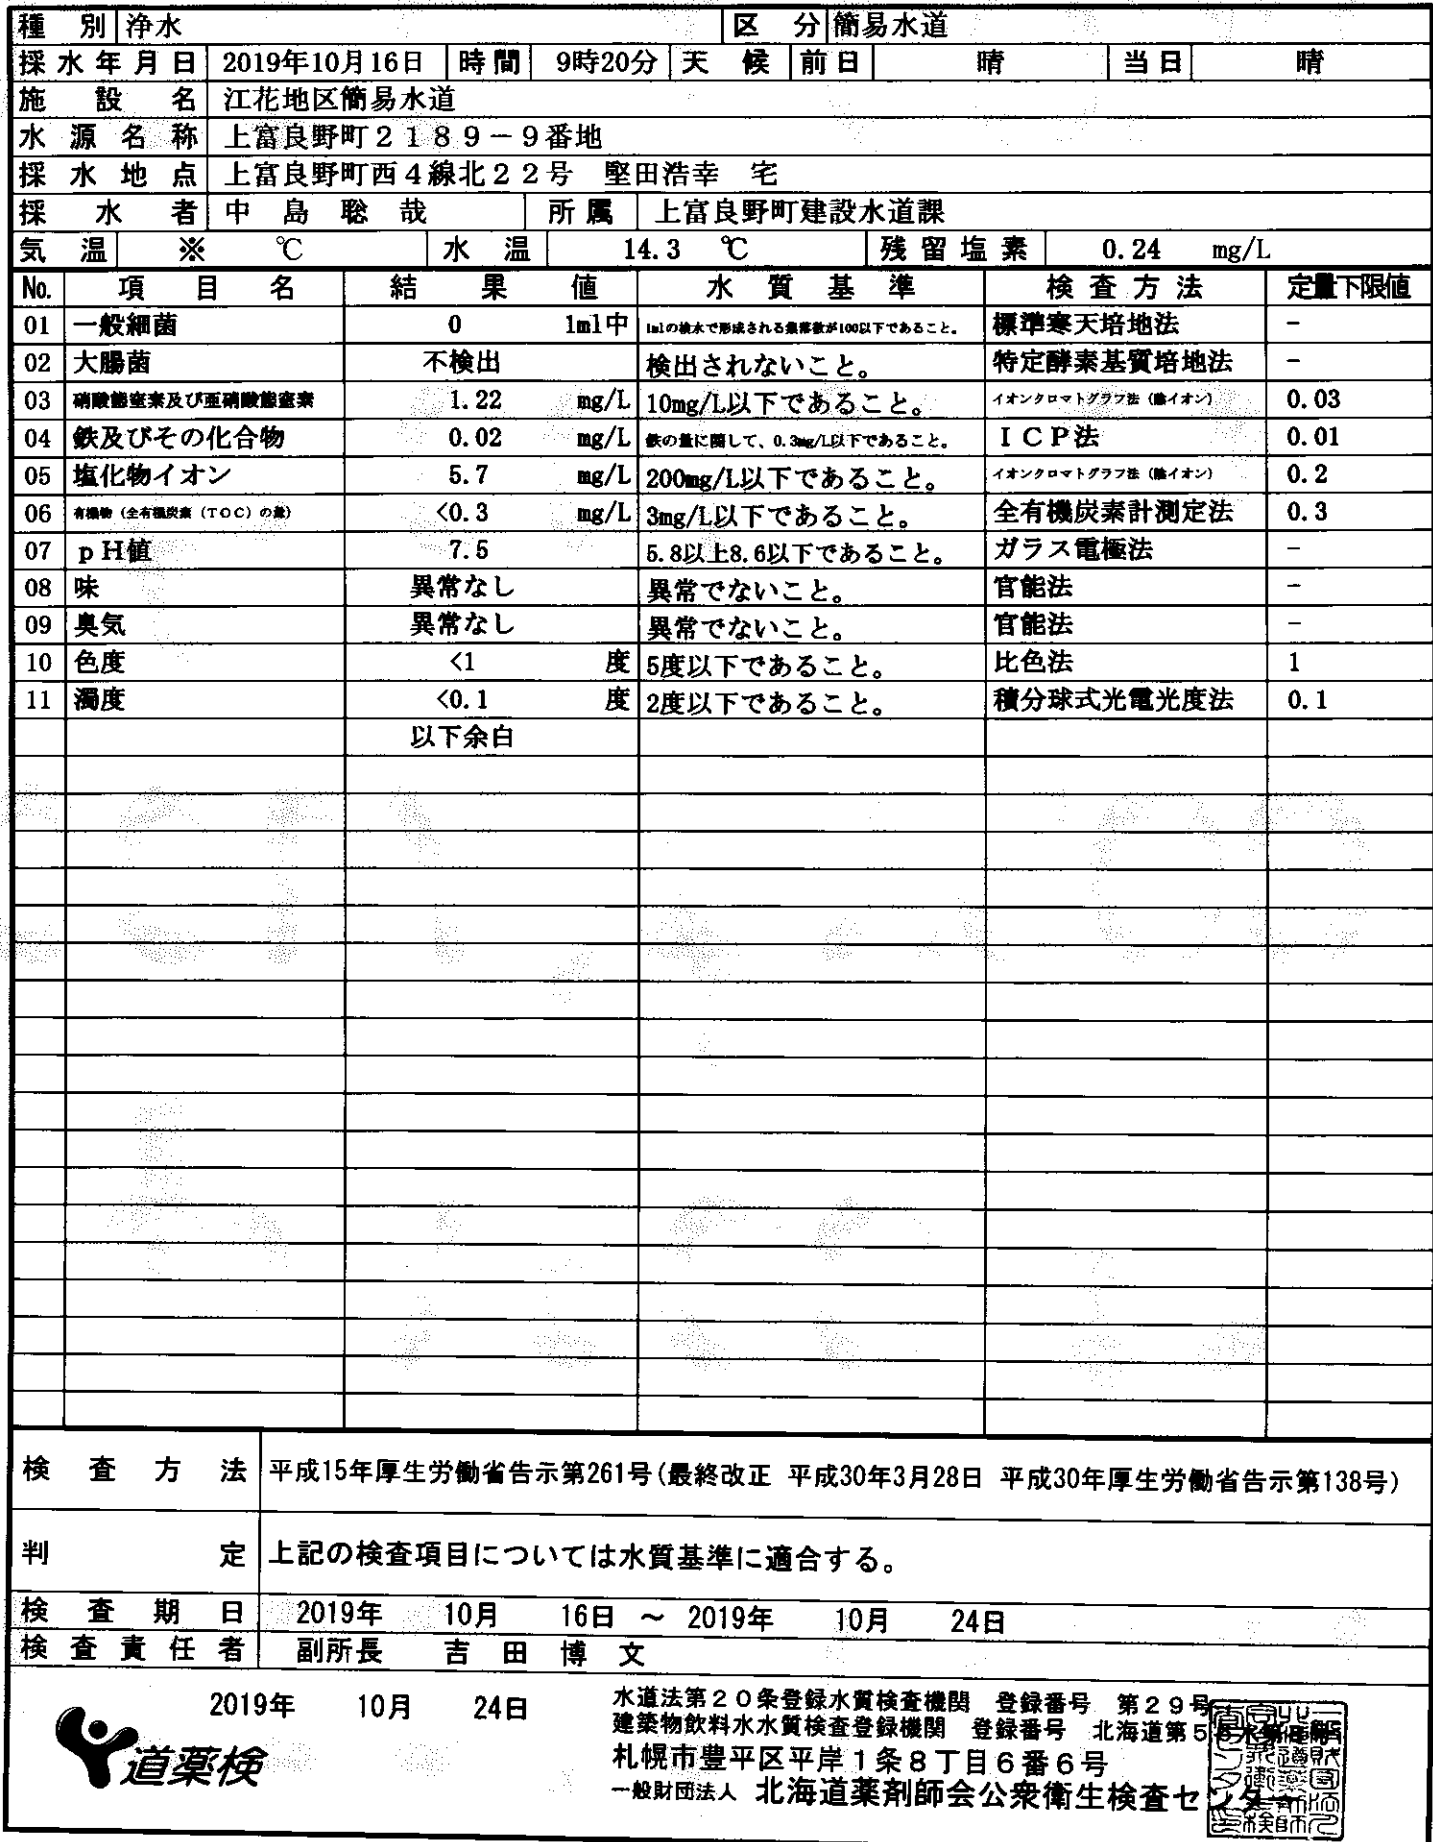 種別 浄水 区分 簡易水道
採水年月日 2019年10月16日 時間 9時20分 天候 前日 晴 当日 晴
施設名 江花地区簡易水道
水源名称 上富良野町2189-9番地
採水地点 上富良野町西4線北22号 堅田浩幸 宅
採水者 中島聡哉 所属 上富良野町建設水道課
気温 ※ ℃ 水温 14.3 ℃ 残留塩素 0.24 mg/L
No. 項目名 結果値 水質基準 検査方法 定量下限値
01 一般細菌 0 1ml中 1mlの検水で形成される集落数が100以下であること。 標準寒天培地法 -
02 大腸菌 不検出 検出されないこと。 特定酵素基質培地法 -
03 硝酸態窒素及び亜硝酸態窒素 1.22 mg/L 10mg/L以下であること。 イオンクロマトグラフ法(陰イオン) 0.03
04 鉄及びその化合物 0.02 mg/L 鉄の量に関して、0.3mg/L以下であること。 ICP法 0.01
05 塩化物イオン 5.7 mg/L 200mg/L以下であること。 イオンクロマトグラフ法(陰イオン) 0.2
06 有機物(全有機炭素(TOC)の量) <0.3 mg/L 3mg/L以下であること。 全有機炭素計測定法 0.3
07 pH値 7.5 5.8以上8.6以下であること。 ガラス電極法 -
08 味 異常なし 異常でないこと。 官能法 -
09 臭気 異常なし 異常でないこと。 官能法 -
10 色度 <1 度 5度以下であること。 比色法 1
11 濁度 <0.1 度 2度以下であること。 積分球式光電光度法 0.1
以下余白
検査方法 平成15年厚生労働省告示第261号(最終改正 平成30年3月28日 平成30年厚生労働省告示第138号)
判定 上記の検査項目については水質基準に適合する。
検査期日 2019年 10月 16日 ~ 2019年 10月 24日
検査責任者 副所長 吉田博文
2019年 10月 24日
水道法第20条登録水質検査機関 登録番号 第29号
建築物飲料水水質検査登録機関 登録番号 北海道第5
札幌市豊平区平岸1条8丁目6番6号
一般財団法人 北海道薬剤師会公衆衛生検査センター
道薬検